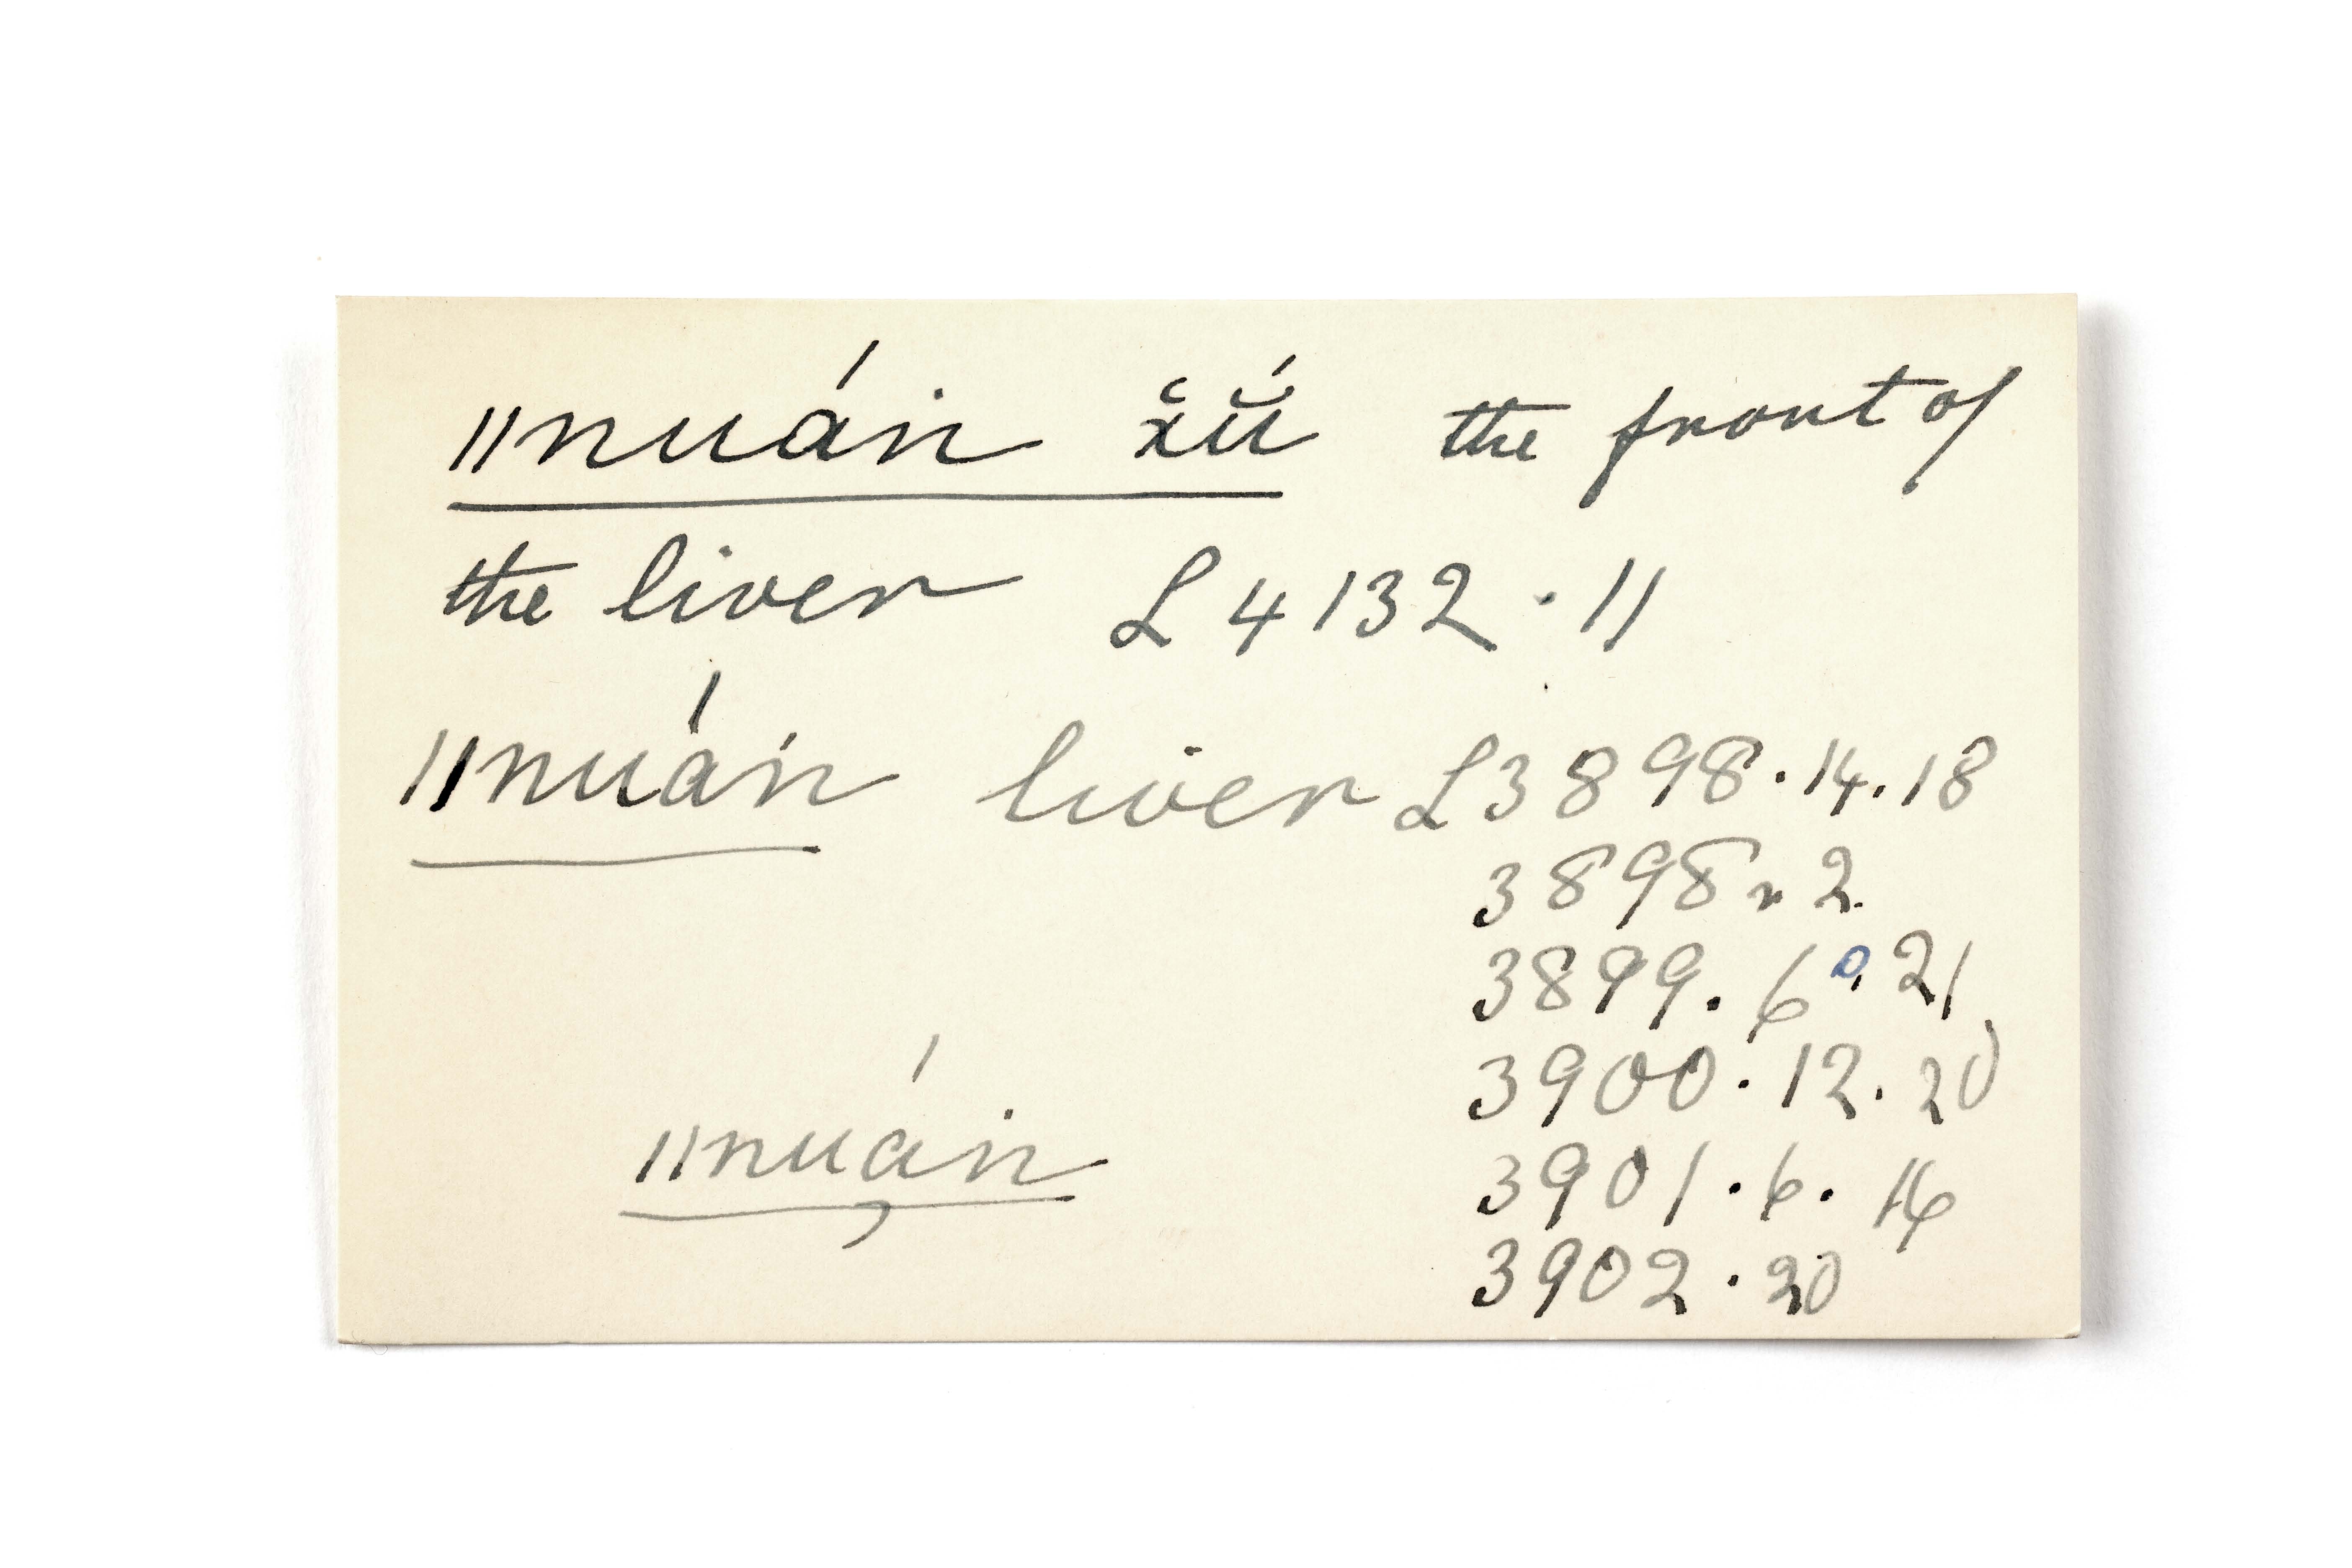 ǁnuáin x̆ŭ́ the front of
the liver L 4132 · 11
ǁnuáin liver L 3898 · 14 . 18
3898 r 2.
3899 . 6 . 21
3900 · 12 . 20
ǁnuáin
3901 · 6 . 16
3902 · 20